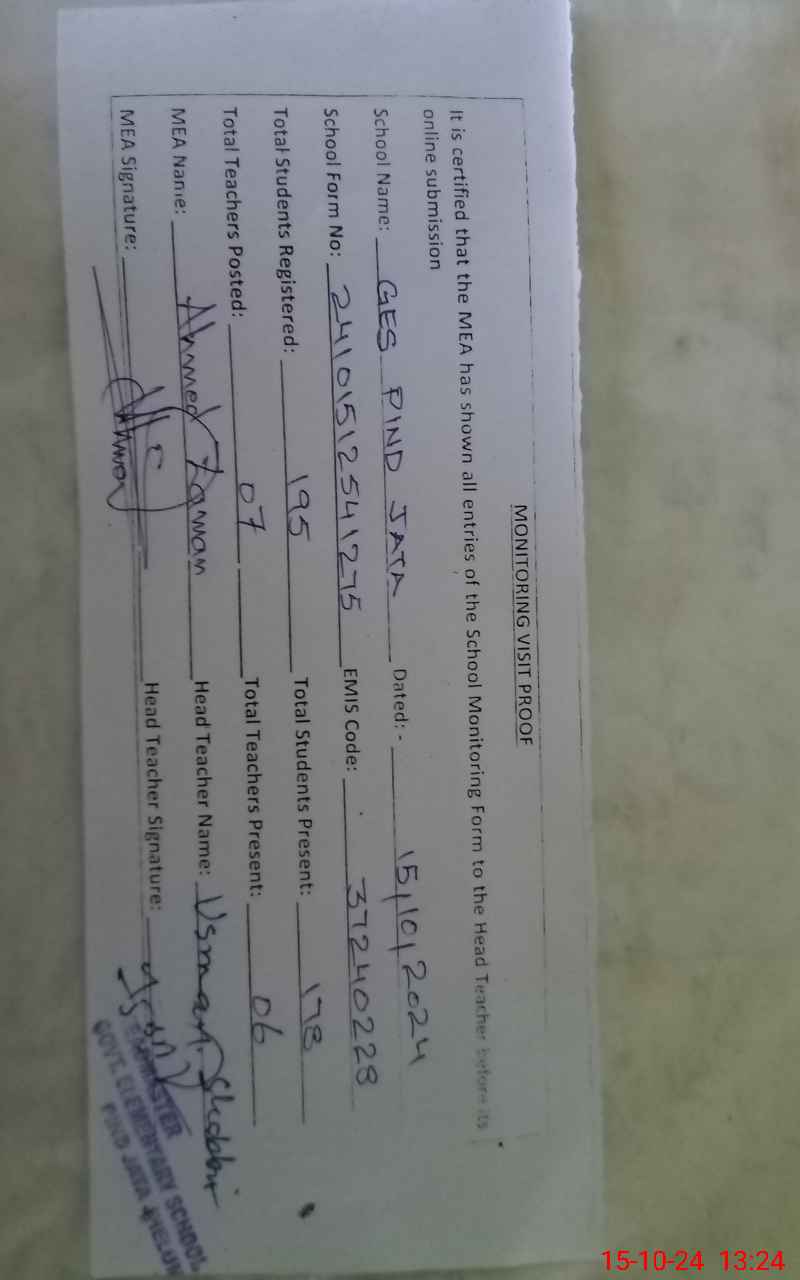 MONITORING VISIT PROOF
It is certified that the MEA has shown all entries of the School Monitoring Form to the Head Teacher before its
online submission
School Name: GES PIND JATA Dated: - 15/10/2024
School Form No: 24101512541275 EMIS Code: 37240228
Total Students Registered: 195 Total Students Present: 178
Total Teachers Posted: 07 Total Teachers Present: 06
MEA Name: Ahmed Zaman Head Teacher Name: Usman Shabbir
MEA Signature: Head Teacher Signature:
HEADMASTER
GOVT. ELEMENTARY SCHOOL
PIND JATA JHELUM
15-10-24 13:24